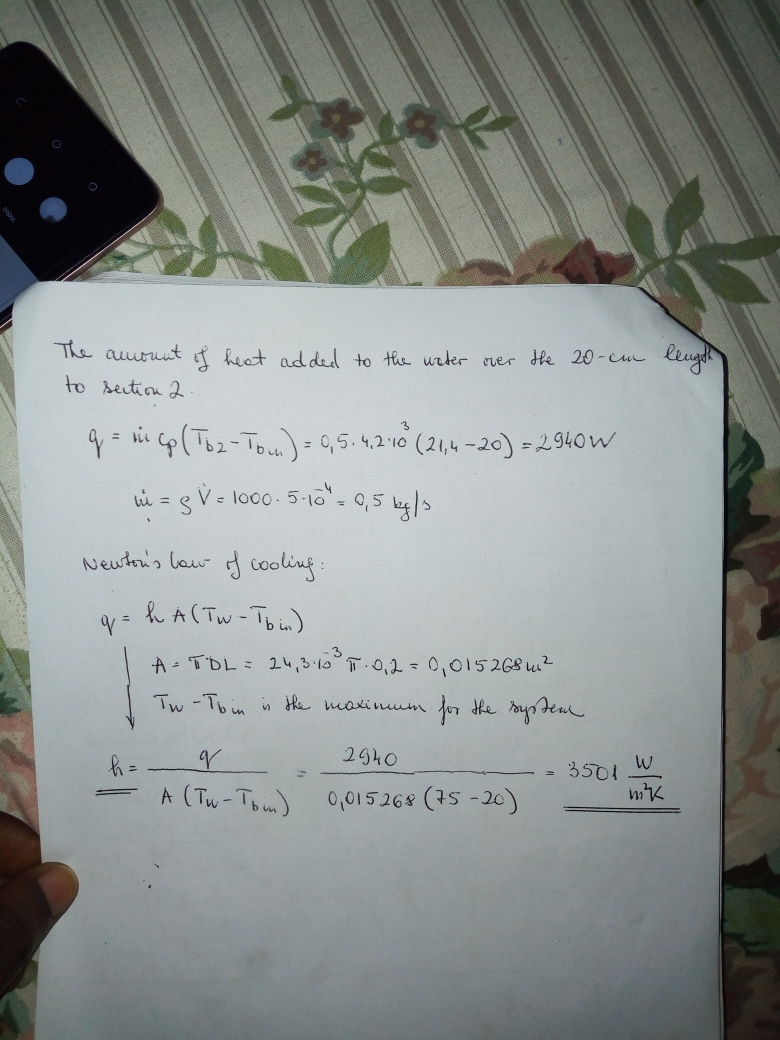 The amount of heat added to the water over the 20-cm length
to section 2.
q = ṁ cp(Tb2 − Tbin) = 0,5 · 4,2·10³ (21,4 − 20) = 2940 W
ṁ = ρ V̇ = 1000 · 5·10⁻⁴ = 0,5 kg/s
Newton's law of cooling:
q = h A (Tw − Tbin)
A = πDL = 24,3·10⁻³ π · 0,2 = 0,015268 m²
Tw − Tbin is the maximum for the system
h = q / A (Tw − Tbin) = 2940 / 0,015268 (75 − 20) = 3501 W / m²K
Video